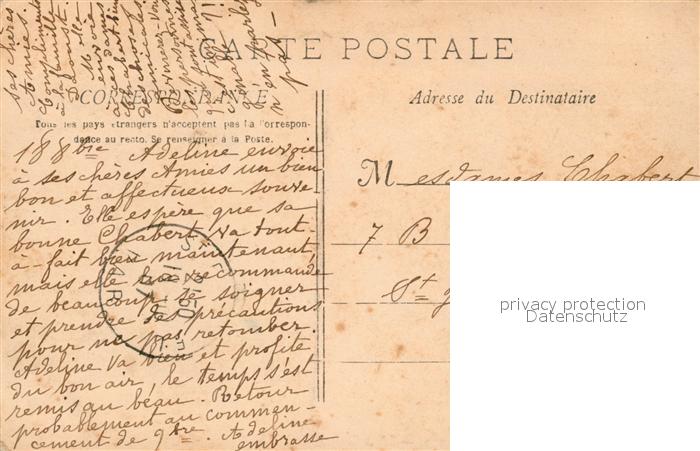 CARTE POSTALE
CORRESPONDANCE
Tous les pays étrangers n'acceptent pas la correspon-
dance au recto. Se renseigner à la Poste.
Adresse du Destinataire
188bie Adeline envoie
à ses chères Amies un bien
bon et affectueux souve-
nir. Elle espère que sa
bonne Chabert, va tout-
à-fait bien maintenant,
mais elle lui recommande
de beaucoup se soigner
et prendre des précautions
pour ne pas retomber.
Adeline va bien et profite
du bon air, le temps s'est
remis au beau. Retour
probablement au commen-
cement de 9bre. Adeline
embrasse
ses chères
Amies.
Compliments
à la famille
Mesdames Chabert
7 B
St
privacy protection
Datenschutz